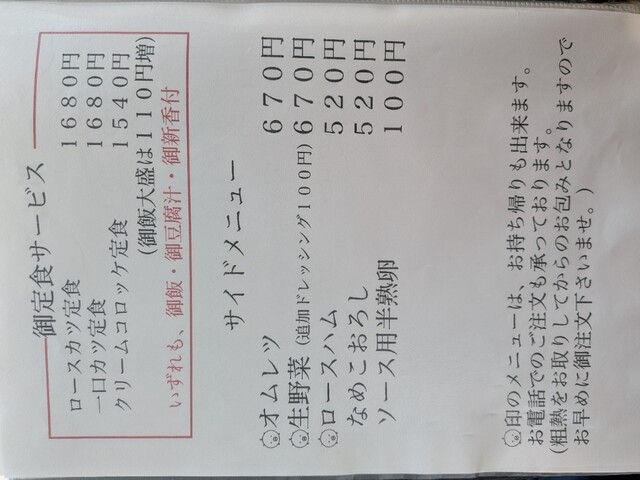 御定食サービス
ロースカツ定食 1680円
一口カツ定食 1680円
クリームコロッケ定食 1540円
(御飯大盛は110円増)
いずれも、御飯・御豆腐汁・御新香付
サイドメニュー
オムレツ 670円
生野菜(追加ドレッシング100円) 670円
ロースハム 520円
なめこおろし 520円
ソース用半熟卵 100円
印のメニューは、お持ち帰りも出来ます。
お電話でのご注文も承っております。
(粗熱をお取りしてからのお包みとなりますので
お早めに御注文下さいませ。)